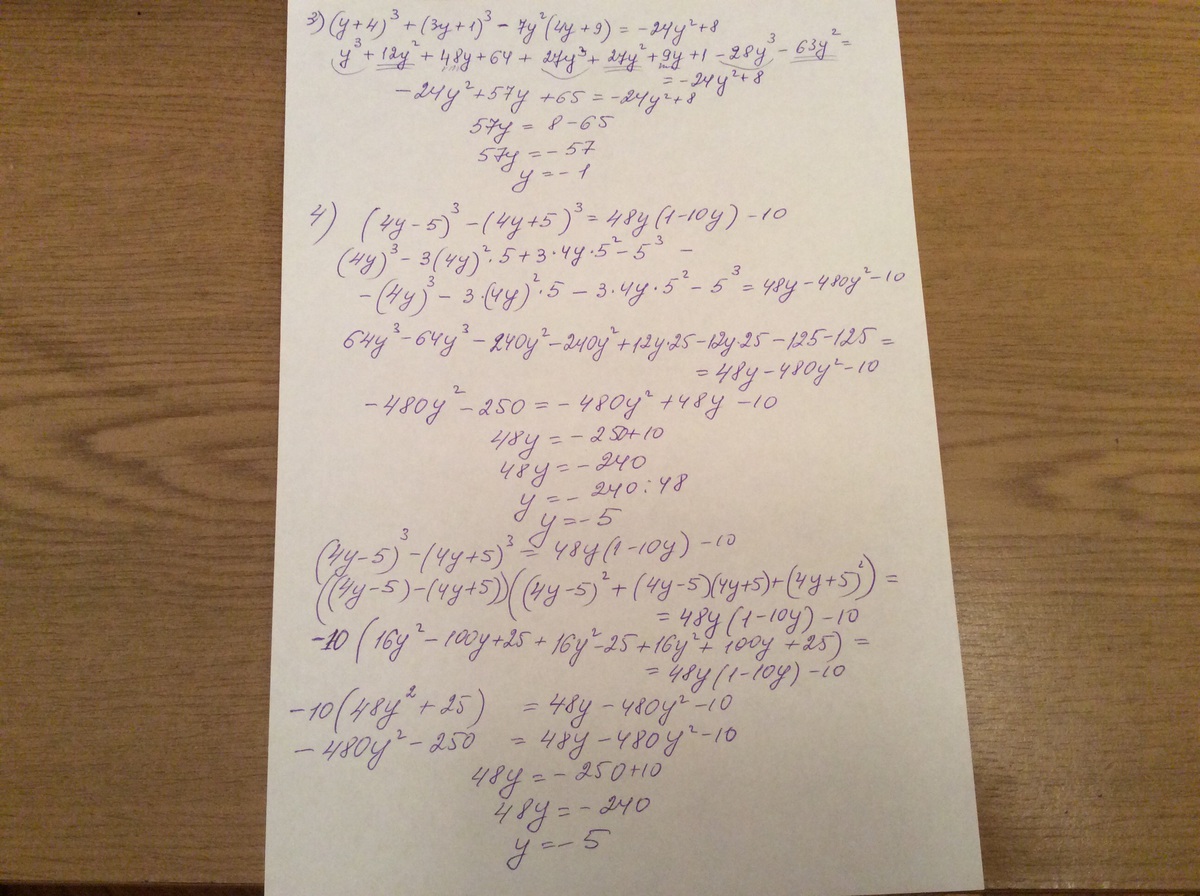 3) (y+4)³ + (3y+1)³ - 7y²(4y+9) = -24y²+8
y³ + 12y² + 48y + 64 + 27y³ + 27y² + 9y + 1 - 28y³ - 63y² =
= -24y²+8
-24y² + 57y + 65 = -24y²+8
57y = 8-65
57y = -57
y = -1
4) (4y-5)³ - (4y+5)³ = 48y(1-10y) - 10
(4y)³ - 3(4y)²·5 + 3·4y·5² - 5³ -
-(4y)³ - 3·(4y)²·5 - 3·4y·5² - 5³ = 48y - 480y² - 10
64y³ - 64y³ - 240y² - 240y² + 12y·25 - 12y·25 - 125 - 125 =
= 48y - 480y² - 10
-480y² - 250 = -480y² + 48y - 10
48y = -250+10
48y = -240
y = -240:48
y = -5
(4y-5)³ - (4y+5)³ = 48y(1-10y) - 10
((4y-5)-(4y+5))((4y-5)² + (4y-5)(4y+5) + (4y+5)²) =
= 48y(1-10y) - 10
-10(16y² - 100y + 25 + 16y² - 25 + 16y² + 100y + 25) =
= 48y(1-10y) - 10
-10(48y² + 25) = 48y - 480y² - 10
-480y² - 250 = 48y - 480y² - 10
48y = -250+10
48y = -240
y = -5